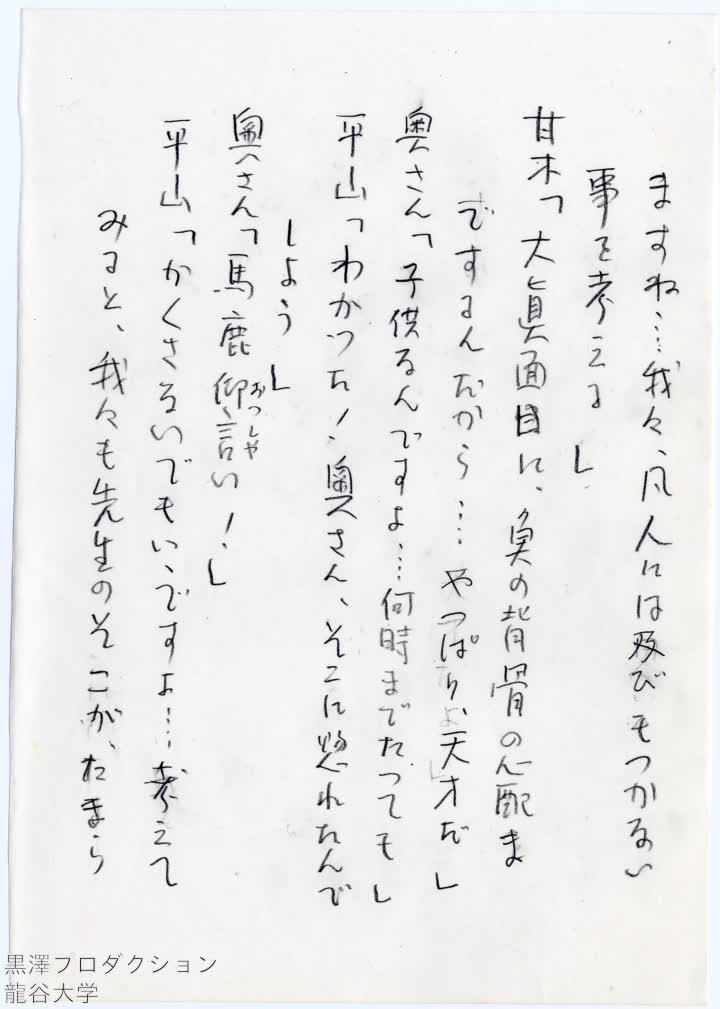 ますね…我々、凡人には及びもつかない
事を考える」
甘木「大眞面目に、魚の背骨の心配ま
でするんだから…やっぱり、天才だ」
奥さん「子供なんですよ…何時までたっても」
平山「わかった！奥さん、そこに惚れたんで
しよう」
奥さん「馬鹿仰言い！」
おつしや
平山「かくさないでもいゝですよ…考えて
みると、我々も先生のそこが、たまら
黒澤プロダクション
龍谷大学